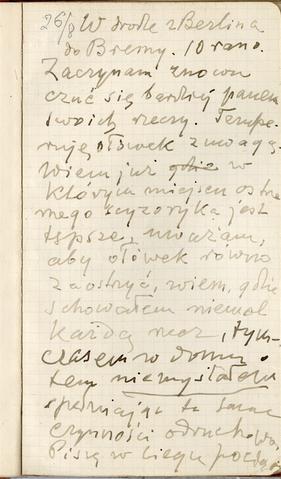 26/8 W drodze z Berlina
do Bremy. 10 rano.
Zaczynam znowu
czuć się bardziej panem
swoich rzeczy. Tempe-
ruję ołówek z uwagą.
Wiem już gdzie w
którym miejscu ostre-
mego scyzoryka jest
tępsze, uważam,
aby ołówek równo
zaostrzyć, wiem, gdzie
schowałem niemal
każdą rzecz, tym-
czasem w domu
tem niemyślałem
spełniając te same
czynności odruchowo.
Piszę w ciągu